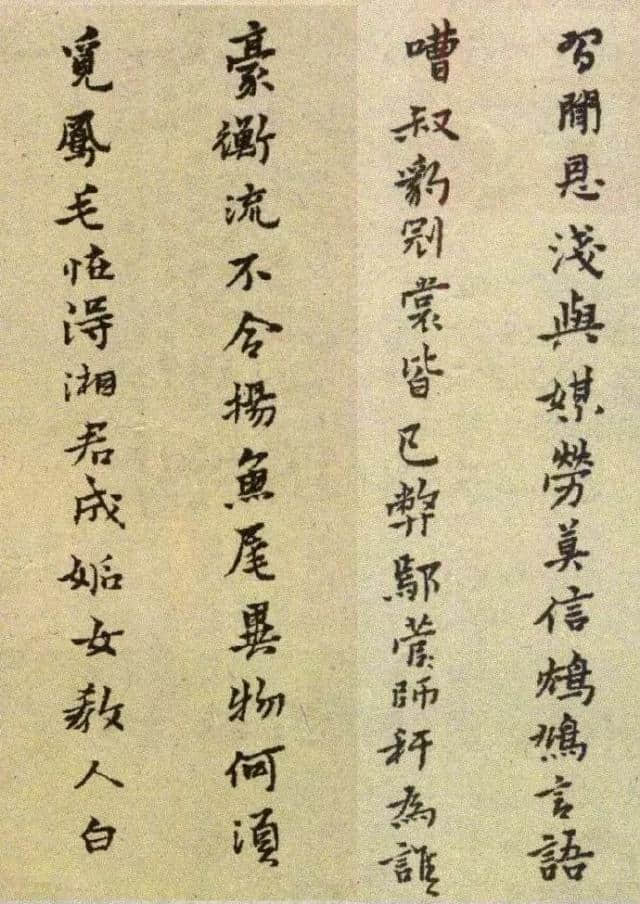 習聞恩淺與媒勞莫信鴆鳩言語
嘈叔豹冠裳皆已弊鄢菅師秆為誰
豪衡流不合揚魚尾異物何須
覓鳳毛怪得湘君成姤女教人白